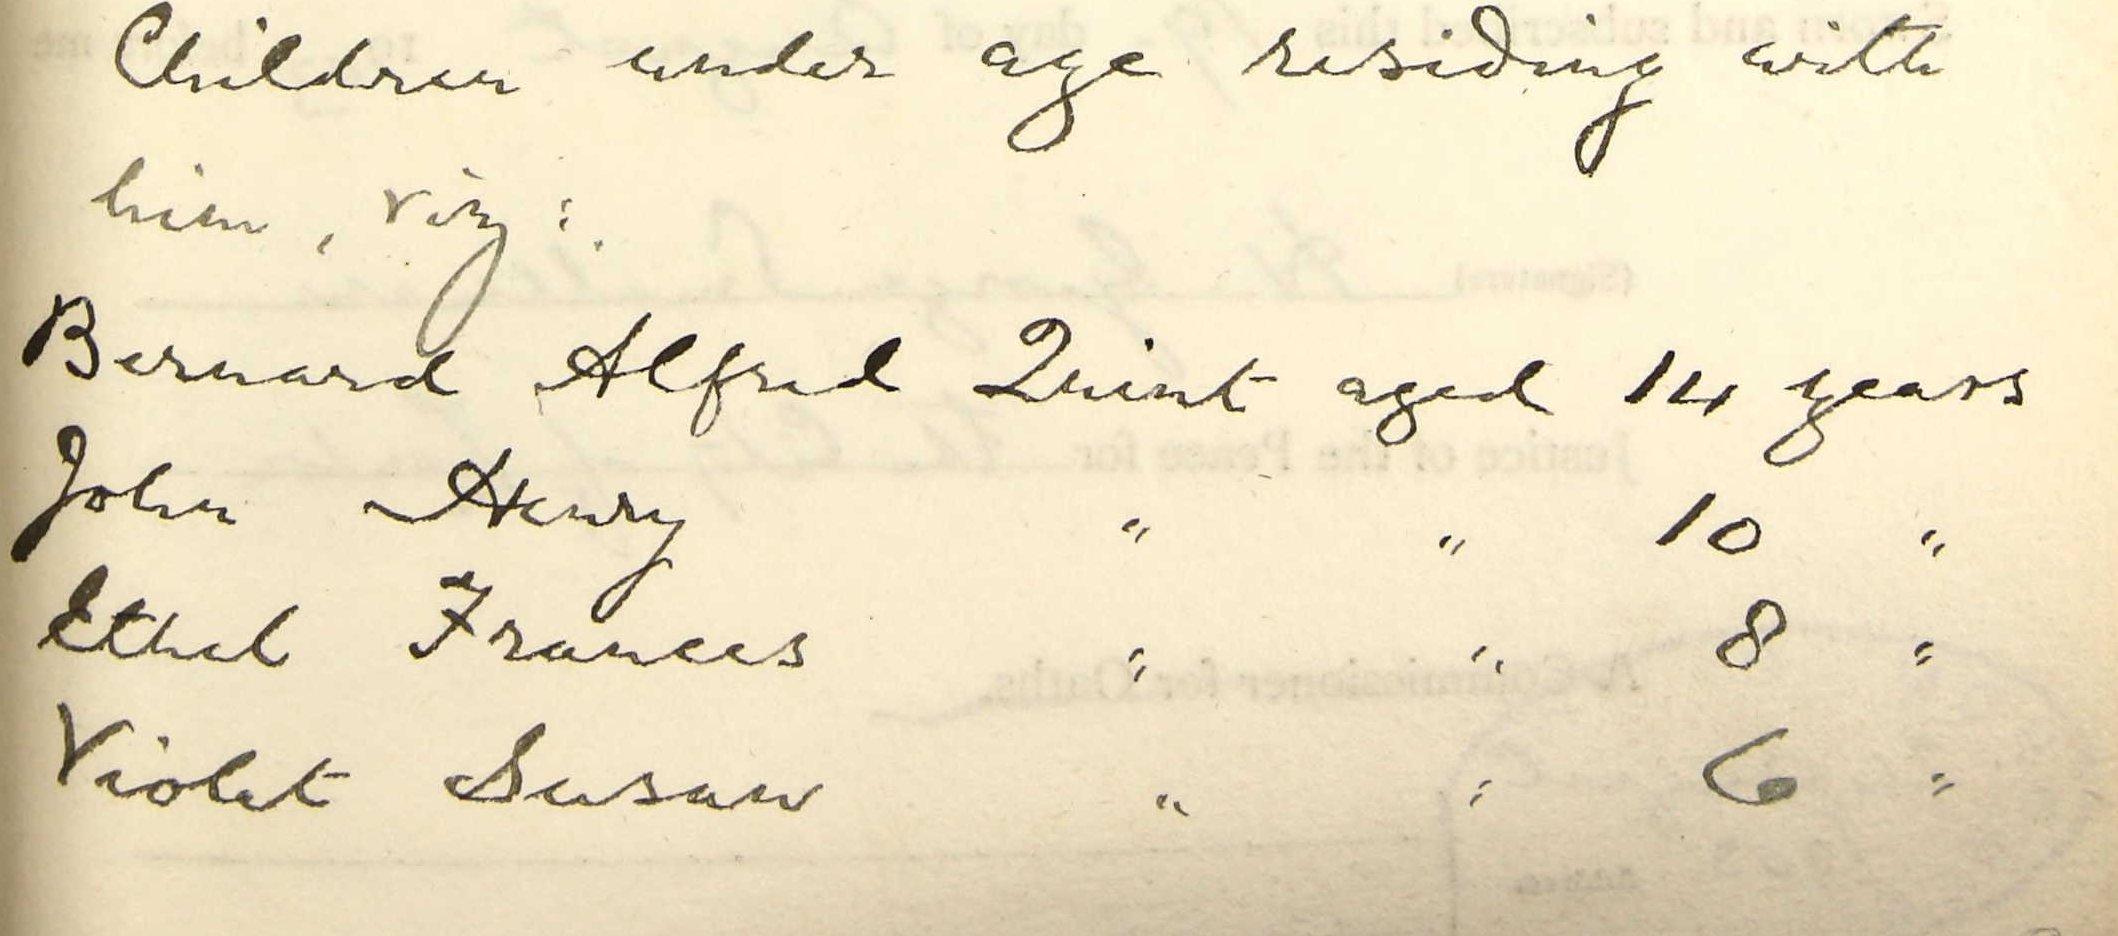 Children under age residing with
him, viz:
Bernard Alfred Quint aged 14 years
John Henry " " 10 "
Ethel Frances " " 8 "
Violet Susan " " 6 "